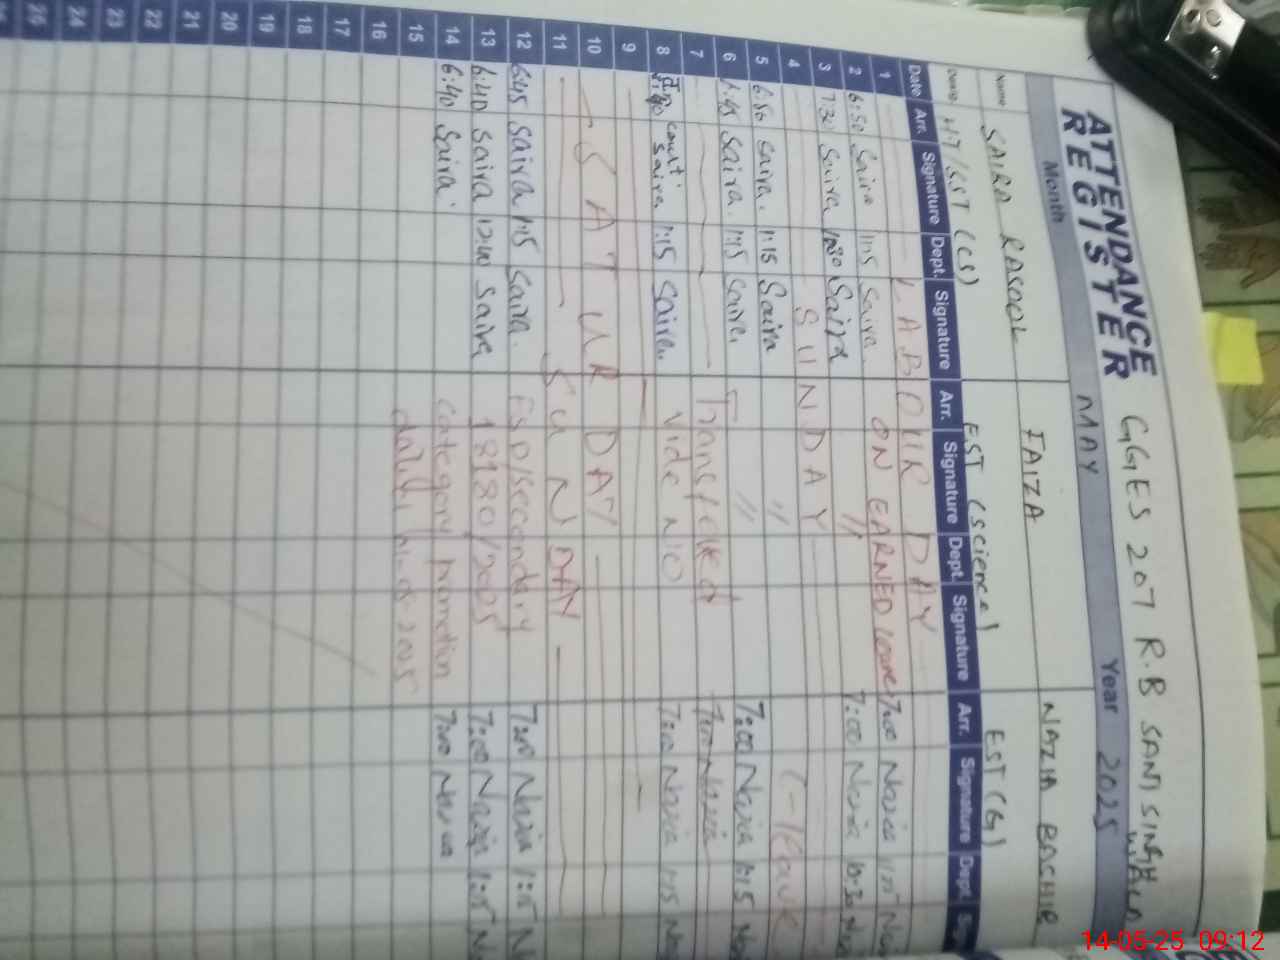 ATTENDANCE REGISTER
GGES 207 R.B SAND SINGH WALA
Month MAY Year 2025
Name SAIRA RASOOL FAIZA NAZIA BASHIR
HT/EST (CS) EST (Science) EST (G)
Date Arr. Signature Dept. Signature Arr. Signature Dept. Signature Arr. Signature Dept.
1 LABOUR DAY
2 6:50 Saira 1:15 Saira ON EARNED leave 7:00 Nazia
3 7:30 Saira 10:30 Saira " 7:00 Nazia 10:30
4 SUNDAY
5 6:50 Saira. 1:15 Saira " C-leave
6 6:45 Saira. 1:15 Saira " 7:00 Nazia 1:15
7 Transferred 7:00 Nazia
8 court Saira 1:15 Saira. Vide NO 7:00 Nazia 1:15
9
10 SATURDAY
11 SUNDAY
12 6:45 Saira 1:15 Saira. ESD/Secondary 7:00 Nazia 1:15
13 6:40 Saira 12:40 Saira 18180/2025 7:00 Nazia 1:15
14 6:40 Saira. category promotion 7:00 Nazia
15
16
17
18
19
20
21
22
23
24
25
26
14-05-25 09:12